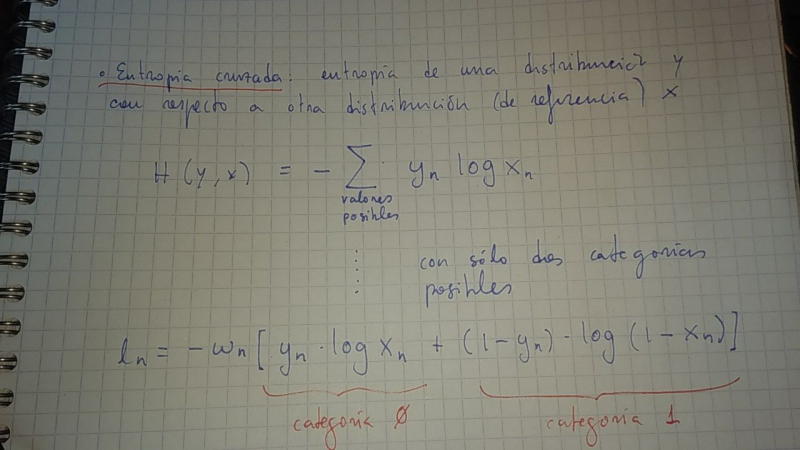 • Entropía cruzada: entropía de una distribución y
con respecto a otra distribución (de referencia) x
H (y, x) = - ∑ yn log xn
valores
posibles
con sólo dos categorías
posibles
ln = -wn [yn · log xn + (1-yn) · log (1-xn)]
categoría 0
categoría 1